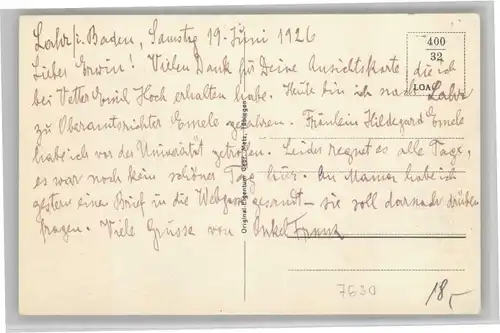 Lahr i. Baden, Samstg 19. Juni 1926
Lieber Erwin! Vielen Dank für Deine Ansichtskarte, die ich
bei Vetter Emil Hoch erhalten habe. Heute bin ich nach Lahr
zu Oberamtsrichter Emele gefahren. Fräulein Hildegard Emele
habe ich vor der Universität getroffen. Leider regnet es alle Tage,
es war noch kein schöner Tag hier. An Mama habe ich
gestern einen Brief in die Webgasse gesandt – sie soll darnach drüben
fragen. Viele Grüsse von Onkel Franz
400
32
LOA
Original-Eigentum Gebr. Metz, Tübingen
7630
18,-